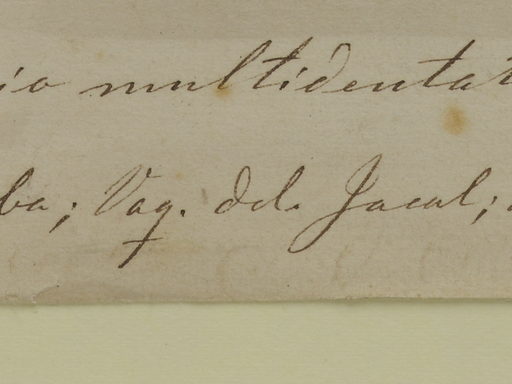 io multidentat
ba; Vag. del Jacal;